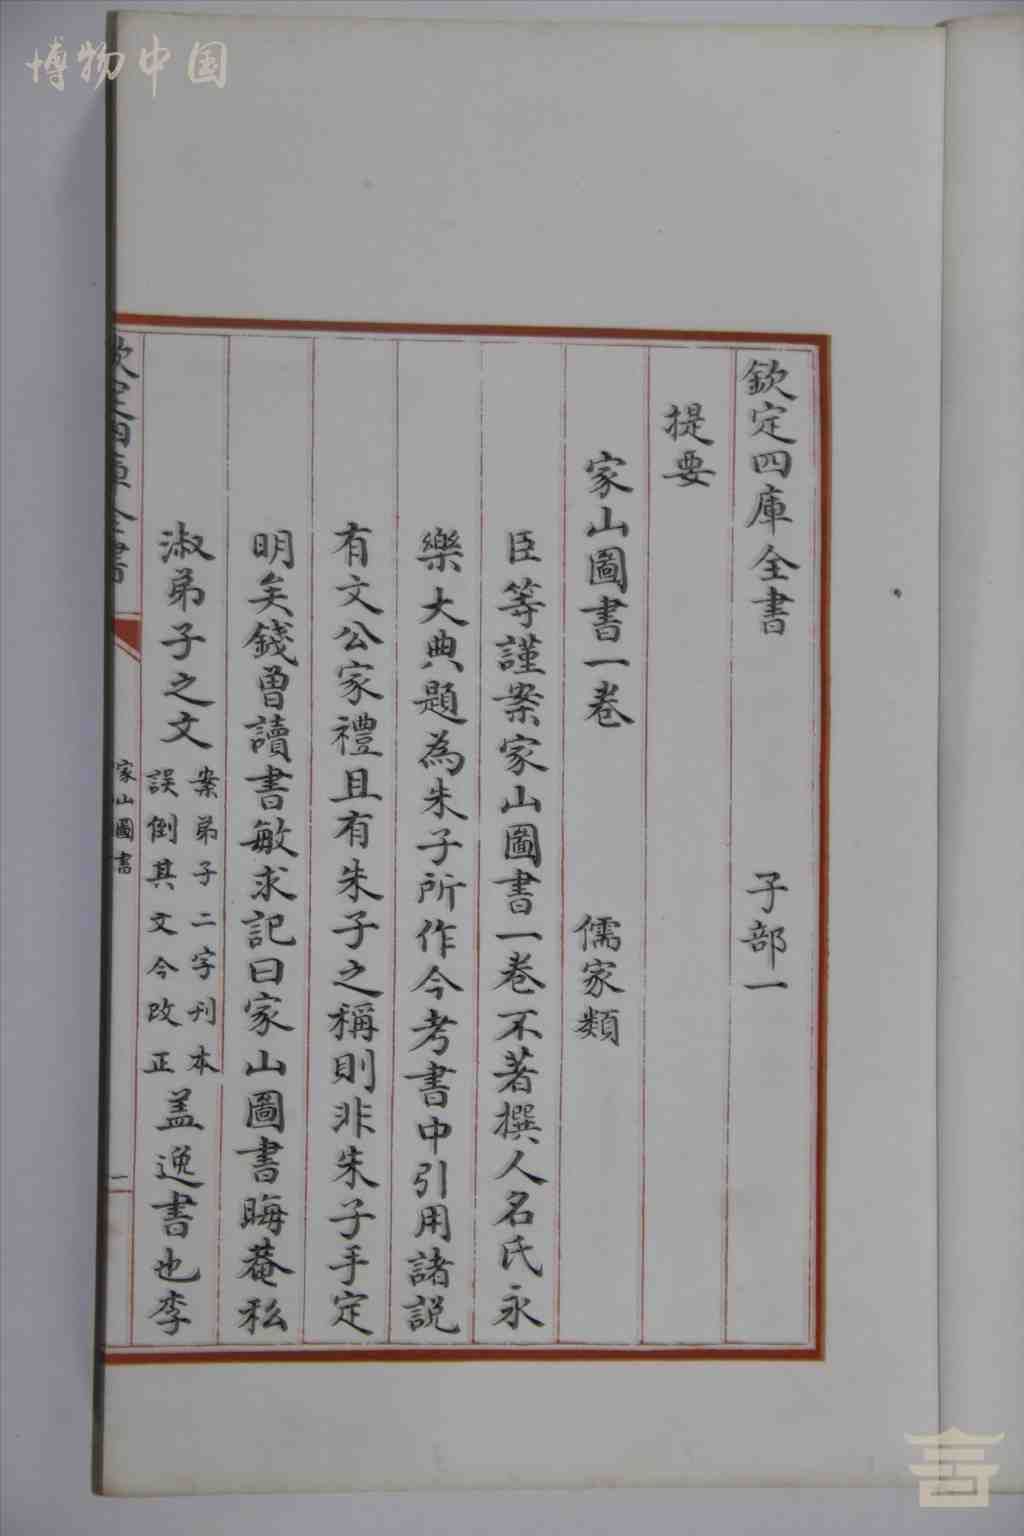 博物中国
欽定四庫全書　子部一
提要
家山圖書一卷　儒家類
臣等謹案家山圖書一卷不著撰人名氏永
樂大典題為朱子所作今考書中引用諸説
有文公家禮且有朱子之稱則非朱子手定
明矣錢曾讀書敏求記曰家山圖書晦菴私
淑弟子之文案弟子二字刊本誤倒其文今改正盖逸書也李
欽定四庫全書
家山圖書
一